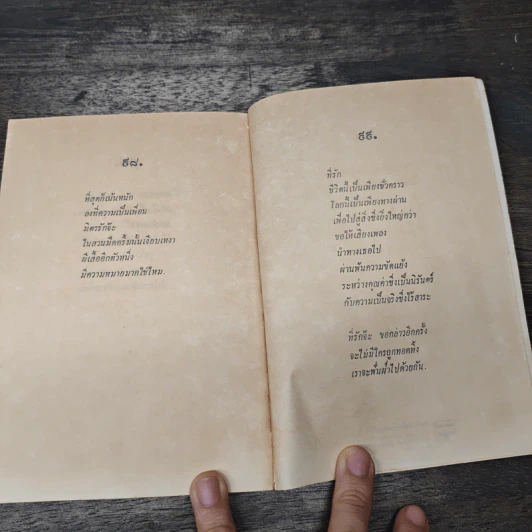 ๕๘.
ที่สุดก็เน้นหนัก
ลงที่ความเป็นเพื่อน
มิตรรักจ๊ะ
ในสวนมืดครึ้มนั้นเงียบเหงา
ผีเสื้ออีกตัวหนึ่ง
มีความหมายมากใช่ไหม.
๕๙.
ที่รัก
ชีวิตนี้เป็นเพียงชั่วคราว
โลกนี้เป็นเพียงทางผ่าน
เพื่อไปสู่สิ่งซึ่งยิ่งใหญ่กว่า
ขอให้เสียงเพลง
นำทางเธอไป
ผ่านพ้นความขัดแย้ง
ระหว่างคุณค่าซึ่งเป็นนิรันดร์
กับความเป็นจริงซึ่งไร้สาระ
ที่รักจ๊ะ ขอกล่าวอีกครั้ง
จะไม่มีใครถูกทอดทิ้ง
เราจะพ้นฝ่าไปด้วยกัน.